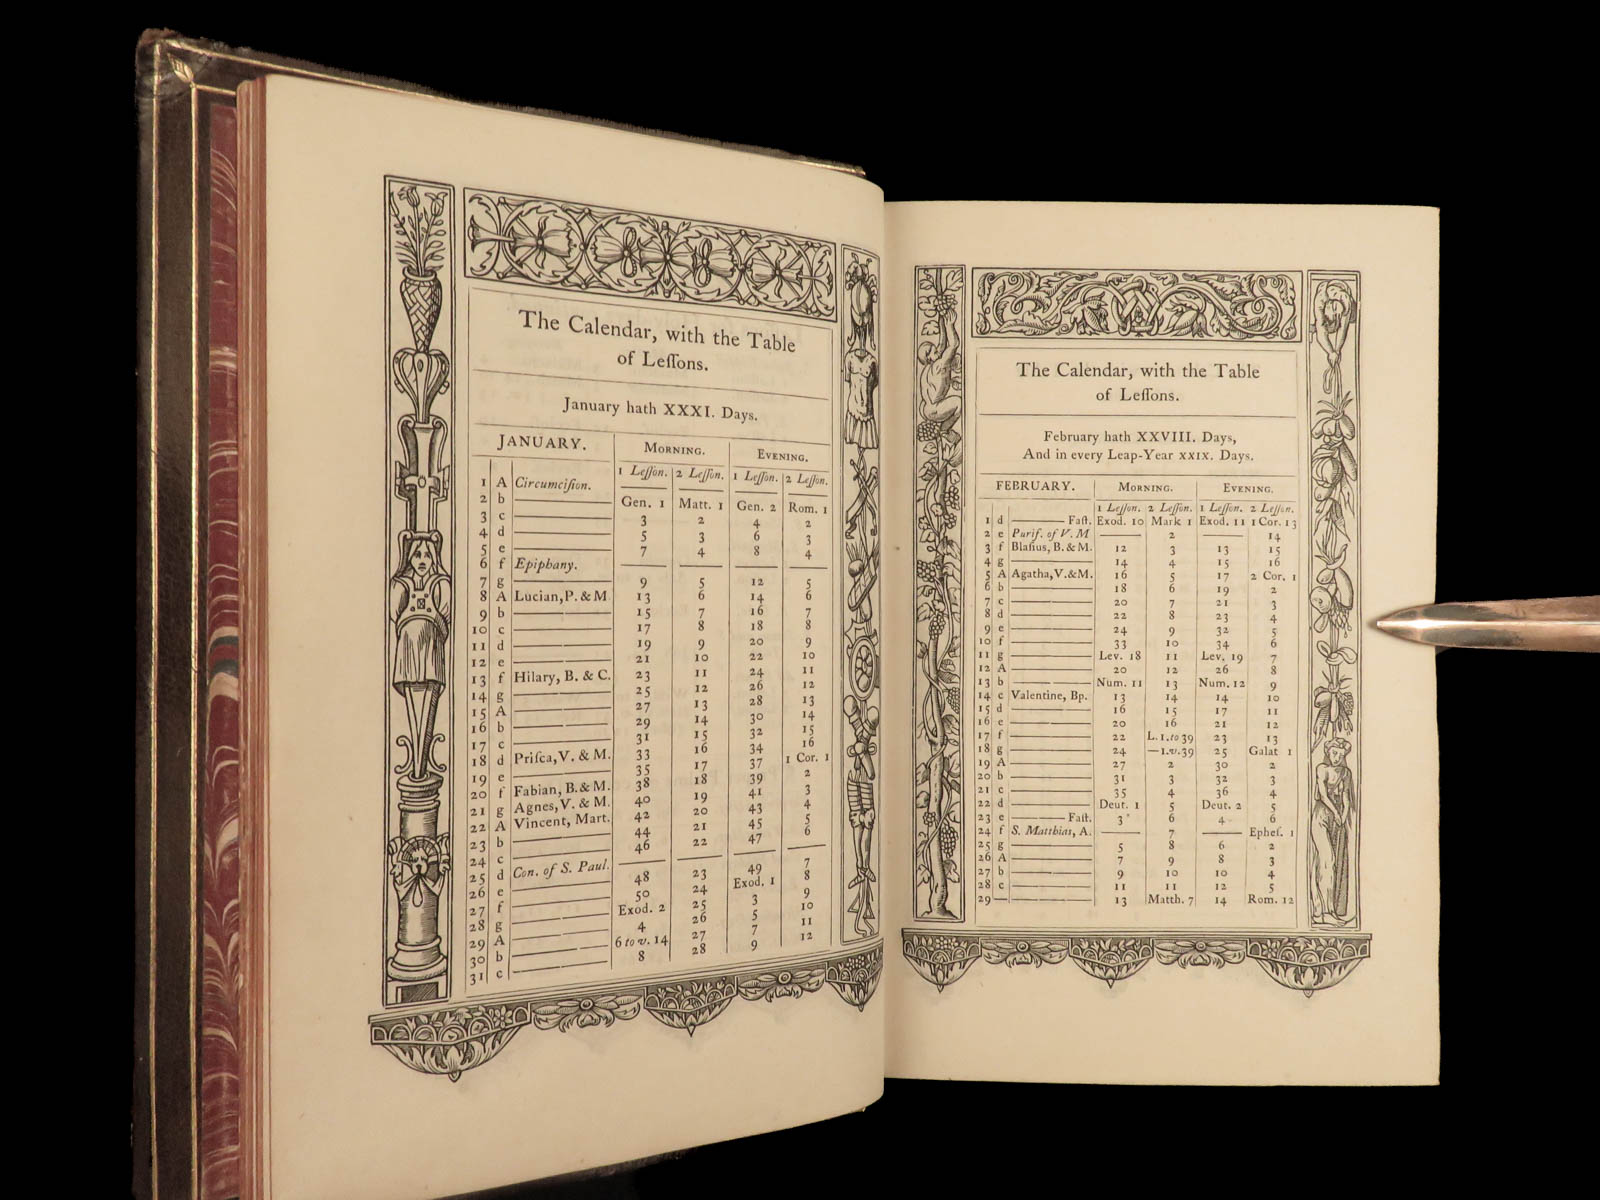 The Calendar, with the Table
of Leſſons.
January hath XXXI. Days.
JANUARY. MORNING. EVENING.
1 Leſſon. 2 Leſſon. 1 Leſſon. 2 Leſſon.
1 A Circumciſion.
2 b Gen. 1 Matt. 1 Gen. 2 Rom. 1
3 c 3 2 4 2
4 d 5 3 6 3
5 e 7 4 8 4
6 f Epiphany.
7 g 9 5 12 5
8 A Lucian, P. & M 13 6 14 6
9 b 15 7 16 7
10 c 17 8 18 8
11 d 19 9 20 9
12 e 21 10 22 10
13 f Hilary, B. & C. 23 11 24 11
14 g 25 12 26 12
15 A 27 13 28 13
16 b 29 14 30 14
17 c 31 15 32 15
18 d Priſca, V. & M. 33 16 34 16
19 e 35 17 37 1 Cor. 1
20 f Fabian, B. & M. 38 18 39 2
21 g Agnes, V. & M. 40 19 41 3
22 A Vincent, Mart. 42 20 43 4
23 b 44 21 45 5
24 c 46 22 47 6
25 d Con. of S. Paul.
26 e 48 23 49 7
27 f 50 24 Exod. 1 8
28 g Exod. 2 25 3 9
29 A 4 26 5 10
30 b 6 to v. 14 27 7 11
31 c 8 28 9 12
The Calendar, with the Table
of Leſſons.
February hath XXVIII. Days,
And in every Leap-Year XXIX. Days.
FEBRUARY. MORNING. EVENING.
1 Leſſon. 2 Leſſon. 1 Leſſon. 2 Leſſon.
1 d Faſt. Exod. 10 Mark 1 Exod. 11 1 Cor. 13
2 e Purif. of V. M 2 14
3 f Blaſius, B. & M. 12 3 13 15
4 g 14 4 15 16
5 A Agatha, V. & M. 16 5 17 2 Cor. 1
6 b 18 6 19 2
7 c 20 7 21 3
8 d 22 8 23 4
9 e 24 9 32 5
10 f 33 10 34 6
11 g Lev. 18 11 Lev. 19 7
12 A 20 12 26 8
13 b Num. 11 13 Num. 12 9
14 c Valentine, Bp. 13 14 14 10
15 d 16 15 17 11
16 e 20 16 21 12
17 f 22 L. 1. to 39 23 13
18 g 24 1. v. 39 25 Galat 1
19 A 27 2 30 2
20 b 31 3 32 3
21 c 35 4 36 4
22 d Deut. 1 5 Deut. 2 5
23 e Faſt. 3 6 4 6
24 f S. Matthias, A. 7 Epheſ. 1
25 g 5 8 6 2
26 A 7 9 8 3
27 b 9 10 10 4
28 c 11 11 12 5
29 13 Matth. 7 14 Rom. 12